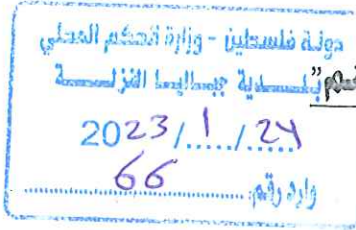 دولة فلسطين - وزارة الحكم المحلي
بلدية جباليا النزلة
2023/1/24
وارد رقم: 66